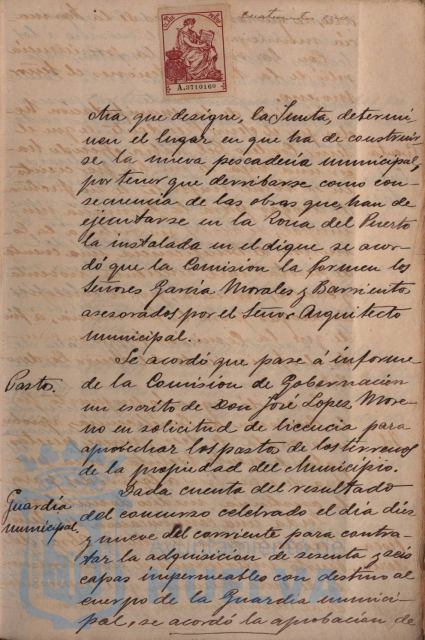 A.3710160
otra que designe, la Junta, determi-
nen el lugar en que ha de construir-
se la nueva pescadería municipal,
por tener que derribarse como con-
secuencia de las obras que han de
ejecutarse en la Zona del Puerto
la instalada en el dique se acor-
dó que la Comisión la formen los
Señores García Morales y Barriento
asesorados por el Señor Arquitecto
municipal.
Se acordó que pase á informe
Pasto.
de la Comisión de Gobernación
un escrito de Don José Lopez More-
no en solicitud de licencia para
aprobechar los pasto de los terrenos
de la propiedad del Municipio.
Guardia
municipal.
Dada cuenta del resultado
del concurso celebrado el dia diez
y nueve del corriente para contra-
tar la adquisición de sesenta y seis
capas impermeables con destino al
cuerpo de la Guardia munici-
pal, se acordó la aprobación de